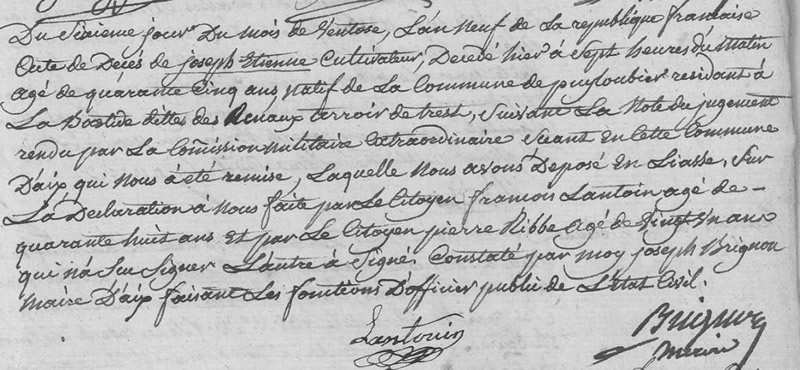 Du Sixieme jour Du mois de Ventose, L'an neuf de La republique francaise
Acte de Décès de joseph Etienne Cultivateur, Decedé hier à Sept heures du Matin
agé de quarante Cinq ans natif de La Commune de puyloubier residant à
La Bastide dittes des Renaux terroir de trest, Suivant La Note du jugement
rendu par La Comission militaire Extraordinaire Séant En Cette Commune
D'aix qui nous à été remise, Laquelle Nous avons Deposé En Liasse, Sur
La Declaration à Nous faite par Le Citoyen francois Lantoin agé de -
quarante huit ans Et par Le Citoyen pierre Ribbe agé de Vingt Un ans
qui n'a Seu Signer L'autre à Signé. Constaté par moy joseph Brignon
Maire D'aix faisant Les fonctions D'officier public de L'état Civil.
Lantouin
Brignon
maire